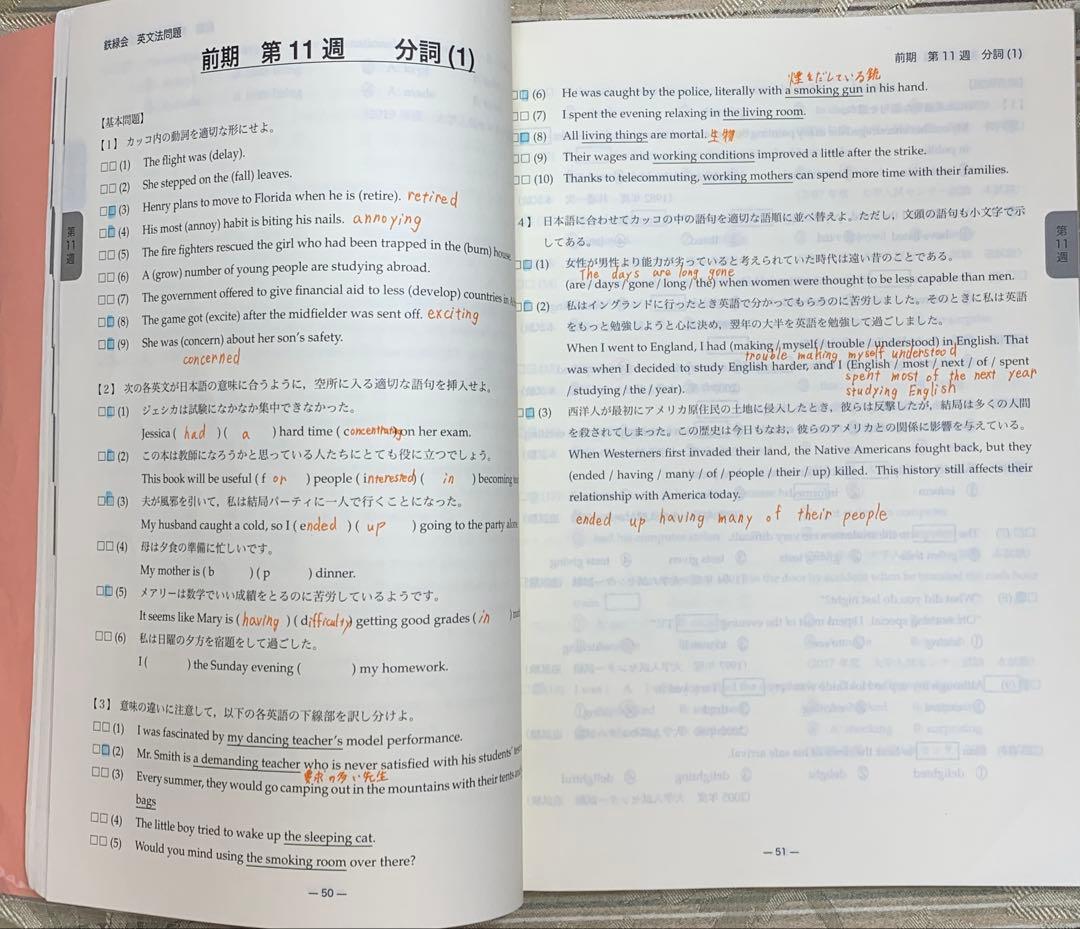 鉄緑会 英文法問題
前期 第11週 分詞(1)
【基本問題】
【1】 カッコ内の動詞を適切な形にせよ。
□□(1) The flight was (delay).
□□(2) She stepped on the (fall) leaves.
□□(3) Henry plans to move to Florida when he is (retire). retired
□□(4) His most (annoy) habit is biting his nails. annoying
□□(5) The fire fighters rescued the girl who had been trapped in the (burn) house.
□□(6) A (grow) number of young people are studying abroad.
□□(7) The government offered to give financial aid to less (develop) countries in
□□(8) The game got (excite) after the midfielder was sent off. exciting
□□(9) She was (concern) about her son's safety.
concerned
【2】 次の各英文が日本語の意味に合うように，空所に入る適切な語句を挿入せよ。
□□(1) ジェシカは試験になかなか集中できなかった。
Jessica ( had ) ( a ) hard time ( concentrating on her exam.
□□(2) この本は教師になろうかと思っている人たちにとても役に立つでしょう。
This book will be useful ( f or ) people ( interested ) ( in ) becoming
□□(3) 夫が風邪を引いて，私は結局パーティに一人で行くことになった。
My husband caught a cold, so I ( ended ) ( up ) going to the party alone
□□(4) 母は夕食の準備に忙しいです。
My mother is ( b ) ( p ) dinner.
□□(5) メアリーは数学でいい成績をとるのに苦労しているようです。
It seems like Mary is ( having ) ( difficulty) getting good grades ( in )
□□(6) 私は日曜の夕方を宿題をして過ごした。
I ( ) the Sunday evening ( ) my homework.
【3】 意味の違いに注意して，以下の各英語の下線部を訳し分けよ。
□□(1) I was fascinated by my dancing teacher's model performance.
□□(2) Mr. Smith is a demanding teacher who is never satisfied with his students'
要求の多い先生
□□(3) Every summer, they would go camping out in the mountains with their tents and
bags
□□(4) The little boy tried to wake up the sleeping cat.
□□(5) Would you mind using the smoking room over there?
— 50 —
第11週
前期 第11週 分詞(1)
煙をだしている銃
□□(6) He was caught by the police, literally with a smoking gun in his hand.
□□(7) I spent the evening relaxing in the living room.
□□(8) All living things are mortal. 生物
□□(9) Their wages and working conditions improved a little after the strike.
□□(10) Thanks to telecommuting, working mothers can spend more time with their families.
4】 日本語に合わせてカッコの中の語句を適切な語順に並べ替えよ。ただし，文頭の語句も小文字で示
してある。
□□(1) 女性が男性より能力が劣っていると考えられていた時代は遠い昔のことである。
The days are long gone
(are / days / gone / long / the) when women were thought to be less capable than men.
□□(2) 私はイングランドに行ったとき英語で分かってもらうのに苦労しました。そのときに私は英語
をもっと勉強しようと心に決め，翌年の大半を英語を勉強して過ごしました。
When I went to England, I had (making / myself / trouble / understood) in English. That
trouble making myself understood
was when I decided to study English harder, and I (English / most / next / of / spent
spent most of the next year
/ studying / the / year).
studying English
□□(3) 西洋人が最初にアメリカ原住民の土地に侵入したとき，彼らは反撃したが，結局は多くの人間
を殺されてしまった。この歴史は今日もなお，彼らのアメリカとの関係に影響を与えている。
When Westerners first invaded their land, the Native Americans fought back, but they
(ended / having / many / of / people / their / up) killed. This history still affects their
relationship with America today.
ended up having many of their people
— 51 —
第11週